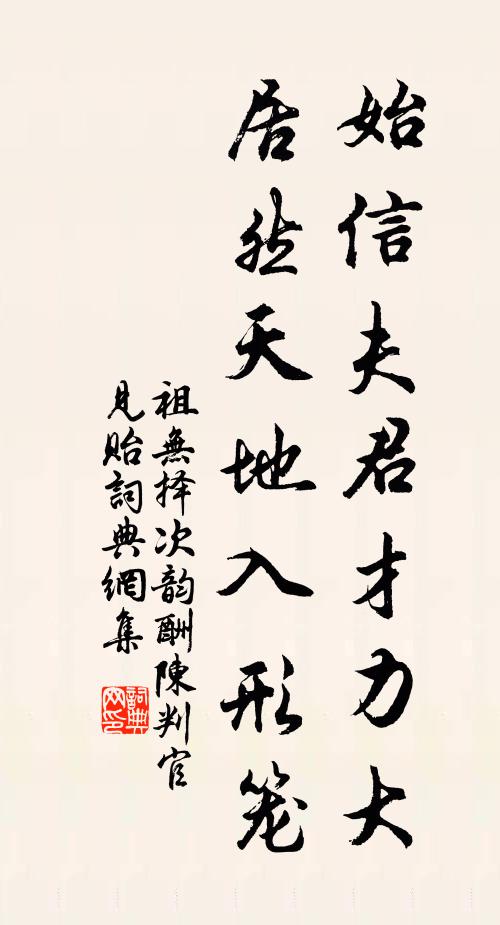 始信夫君才力大
居然天地入形笼
祖無择次韵酬陳判官
見貽詞典網集
詞典
网印